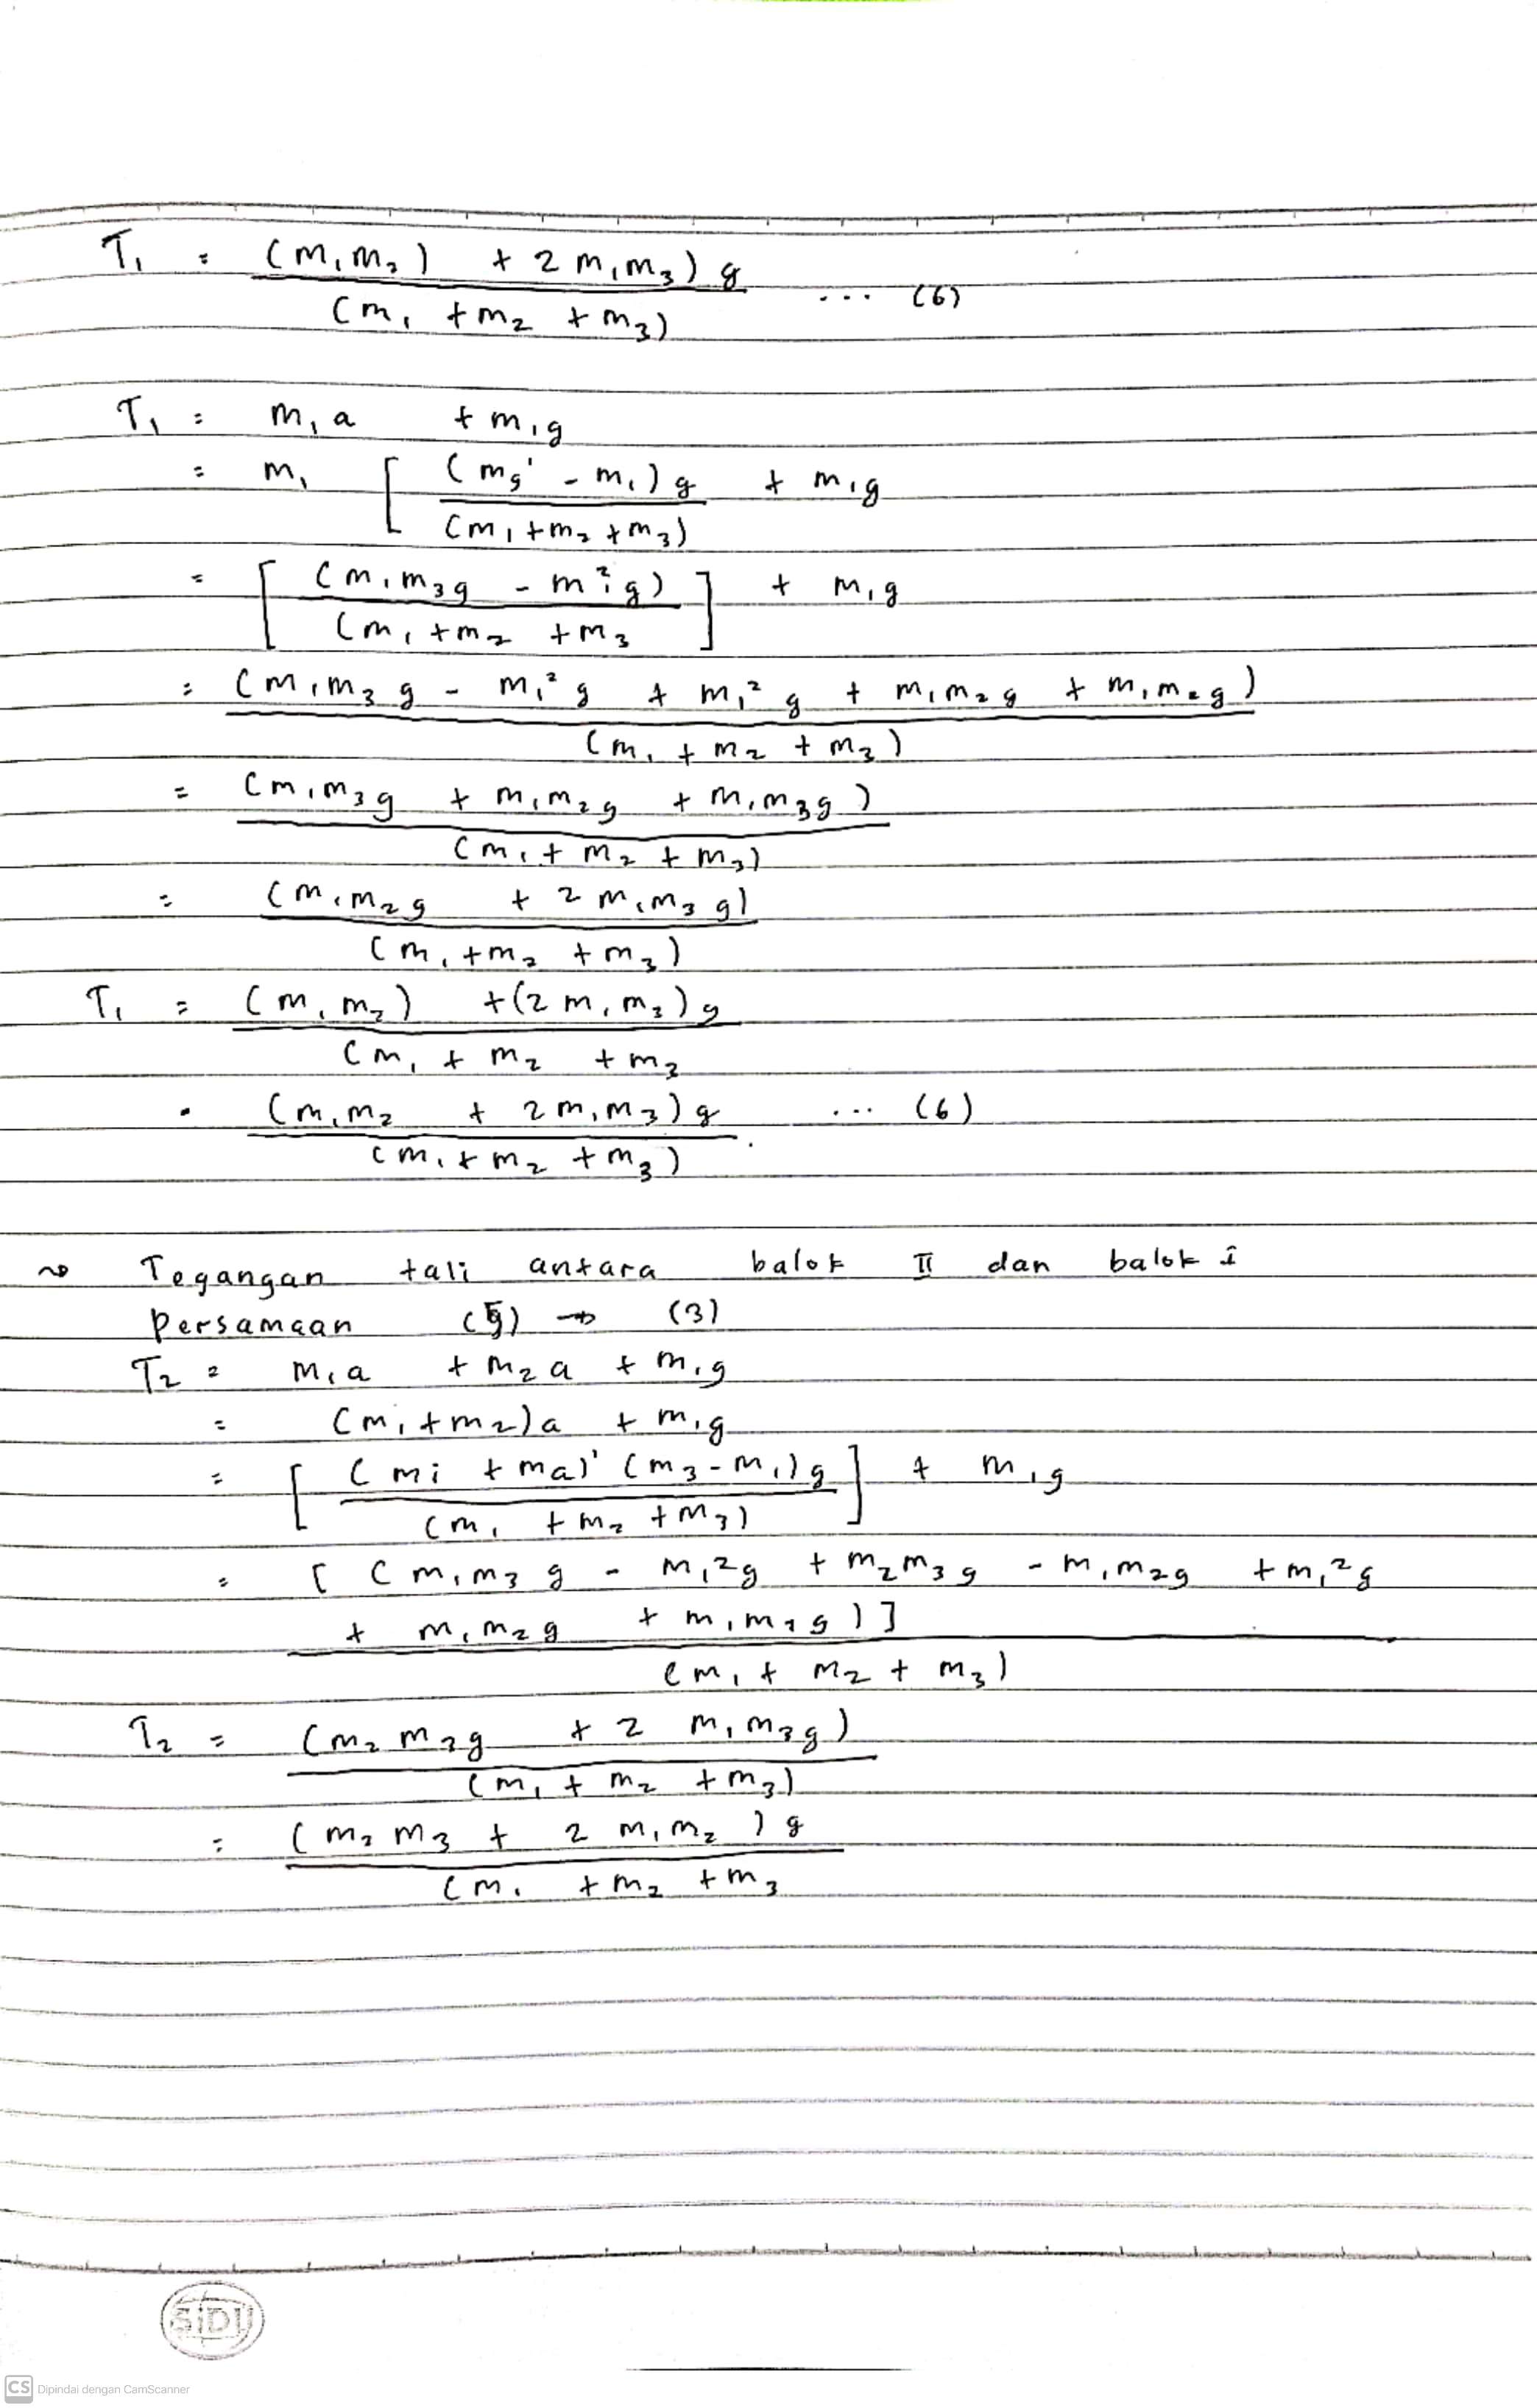 T₁ = (m₁m₂) + 2 m₁m₃) g ... (6)
(m₁ + m₂ + m₃)
T₁ = m₁a + m₁g
= m₁ [ (m₃ - m₁) g + m₁g
(m₁ + m₂ + m₃)
= [ (m₁m₃g - m₁²g) ] + m₁g
(m₁ + m₂ + m₃
= (m₁m₃g - m₁²g + m₁²g + m₁m₂g + m₁m₃g)
(m₁ + m₂ + m₃)
= (m₁m₃g + m₁m₂g + m₁m₃g)
(m₁ + m₂ + m₃)
= (m₁m₂g + 2 m₁m₃g)
(m₁ + m₂ + m₃)
T₁ = (m₁m₂) + (2 m₁m₃) g
(m₁ + m₂ + m₃
= (m₁m₂ + 2 m₁m₃) g ... (6)
(m₁ + m₂ + m₃)
Tegangan tali antara balok II dan balok I
Persamaan (5) → (3)
T₂ = m₁a + m₂a + m₁g
= (m₁ + m₂)a + m₁g
= [ (m₁ + m₂) (m₃ - m₁) g ] + m₁g
(m₁ + m₂ + m₃)
= [ (m₁m₃g - m₁2g + m₂m₃g - m₁m₂g + m₁²g
+ m₁m₂g + m₁m₃g ) ]
(m₁ + m₂ + m₃)
T₂ = (m₂m₃g + 2 m₁m₃g)
(m₁ + m₂ + m₃)
= (m₂m₃ + 2 m₁m₂ ) g
(m₁ + m₂ + m₃
SiDU
CS Dipindai dengan CamScanner